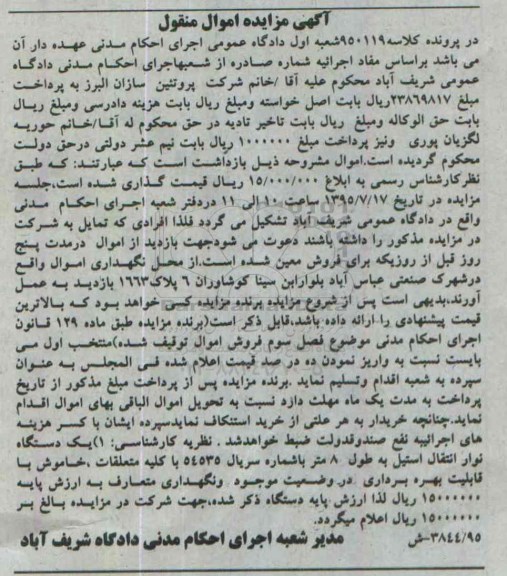 آگهی مزایده اموال منقول
در پرونده کلاسه ۹۵۰۱۱۹شعبه اول دادگاه عمومی اجرای احکام مدنی عهده دار آن
می باشد براساس مفاد اجرائیه شماره صادره از شعبهاجرای احکام مدنی دادگاه
عمومی شریف آباد محکوم علیه آقا /خانم شرکت پروتئین سازان البرز به پرداخت
مبلغ ۲۳۸۶۹۸۱۷ریال بابت اصل خواسته ومبلغ ریال بابت هزینه دادرسی ومبلغ ریال
بابت حق الوکاله ومبلغ ریال بابت تاخیر تادیه در حق محکوم له آقا/خانم حوریه
لگزیان پوری ونیز پرداخت مبلغ ۱۰۰۰۰۰۰ ریال بابت نیم عشر دولتی درحق دولت
محکوم گردیده است.اموال مشروحه ذیل بازداشت است که عبارتند: که طبق
نظرکارشناس رسمی به ابلاغ ۱۵/۰۰۰/۰۰۰ ریال قیمت گذاری شده است.جلسه
مزایده در تاریخ ۱۳۹۵/۷/۱۷ ساعت ۱۰ الی ۱۱ دردفتر شعبه اجرای احکام مدنی
واقع در دادگاه عمومی شریف آباد تشکیل می گردد فلذا افرادی که تمایل به شرکت
در مزایده مذکور را داشته باشند دعوت می شودجهت بازدید از اموال درمدت پنج
روز قبل از روزیکه برای فروش معین شده است.از محل نگهداری اموال واقع
درشهرک صنعتی عباس آباد بلوارابن سینا کوشاوران ۶ پلاک۱۶۶۳ بازدید به عمل
آورند،بدیهی است پس از شروع مزایده برنده مزایده کسی خواهد بود که بالاترین
قیمت پیشنهادی را ارائه داده باشد،قابل ذکر است(برنده مزایده طبق ماده ۱۲۹ قانون
اجرای احکام مدنی موضوع فصل سوم فروش اموال توقیف شده)منتخب اول می
بایست نسبت به واریز نمودن ده در صد قیمت اعلام شده فی المجلس به عنوان
سپرده به شعبه اقدام وتسلیم نماید .برنده مزایده پس از پرداخت مبلغ مذکور از تاریخ
پرداخت به مدت یک ماه مهلت دارد نسبت به تحویل اموال الباقی بهای اموال اقدام
نماید.چنانچه خریدار به هر علتی از خرید استنکاف نمایدسپرده ایشان با کسر هزینه
های اجرائیبه نفع صندوقدولت ضبط خواهدشد . نظریه کارشناسی: ۱)یک دستگاه
نوار انتقال استیل به طول ۸ متر باشماره سریال ۵۴۵۳۵ با کلیه متعلقات ،خاموش با
قابلیت بهره برداری در وضعیت موجود ونگهداری متعارف به ارزش پایه
۱۵۰۰۰۰۰۰ ریال لذا ارزش پایه دستگاه ذکر شده،جهت شرکت در مزایده بالغ بر
۱۵۰۰۰۰۰۰ ریال اعلام میگردد.
۳۸۴۴/۹۵-ش مدیر شعبه اجرای احکام مدنی دادگاه شریف آباد